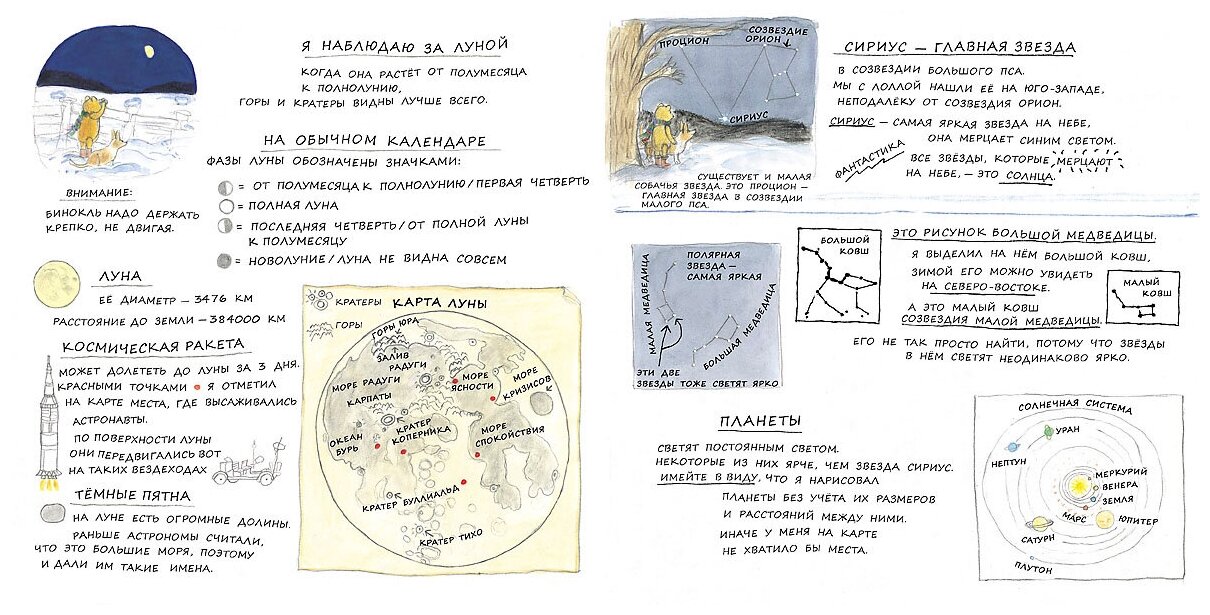 Я НАБЛЮДАЮ ЗА ЛУНОЙ
КОГДА ОНА РАСТЁТ ОТ ПОЛУМЕСЯЦА
К ПОЛНОЛУНИЮ,
ГОРЫ И КРАТЕРЫ ВИДНЫ ЛУЧШЕ ВСЕГО.
ВНИМАНИЕ:
БИНОКЛЬ НАДО ДЕРЖАТЬ
КРЕПКО, НЕ ДВИГАЯ.
НА ОБЫЧНОМ КАЛЕНДАРЕ
ФАЗЫ ЛУНЫ ОБОЗНАЧЕНЫ ЗНАЧКАМИ:
= ОТ ПОЛУМЕСЯЦА К ПОЛНОЛУНИЮ/ПЕРВАЯ ЧЕТВЕРТЬ
= ПОЛНАЯ ЛУНА
= ПОСЛЕДНЯЯ ЧЕТВЕРТЬ/ОТ ПОЛНОЙ ЛУНЫ
К ПОЛУМЕСЯЦУ
= НОВОЛУНИЕ/ЛУНА НЕ ВИДНА СОВСЕМ
ЛУНА
ЕЁ ДИАМЕТР – 3476 КМ
РАССТОЯНИЕ ДО ЗЕМЛИ – 384000 КМ
КОСМИЧЕСКАЯ РАКЕТА
МОЖЕТ ДОЛЕТЕТЬ ДО ЛУНЫ ЗА 3 ДНЯ.
КРАСНЫМИ ТОЧКАМИ • Я ОТМЕТИЛ
НА КАРТЕ МЕСТА, ГДЕ ВЫСАЖИВАЛИСЬ
АСТРОНАВТЫ.
ПО ПОВЕРХНОСТИ ЛУНЫ
ОНИ ПЕРЕДВИГАЛИСЬ ВОТ
НА ТАКИХ ВЕЗДЕХОДАХ
ТЁМНЫЕ ПЯТНА
НА ЛУНЕ ЕСТЬ ОГРОМНЫЕ ДОЛИНЫ.
РАНЬШЕ АСТРОНОМЫ СЧИТАЛИ,
ЧТО ЭТО БОЛЬШИЕ МОРЯ, ПОЭТОМУ
И ДАЛИ ИМ ТАКИЕ ИМЕНА.
КРАТЕРЫ
КАРТА ЛУНЫ
ГОРЫ
ГОРЫ ЮРА
ЗАЛИВ
РАДУГИ
МОРЕ РАДУГИ
МОРЕ
ЯСНОСТИ
МОРЕ
КРИЗИСОВ
КАРПАТЫ
КРАТЕР
КОПЕРНИКА
ОКЕАН
БУРЬ
МОРЕ
СПОКОЙСТВИЯ
КРАТЕР БУЛЛИАЛЬД
КРАТЕР ТИХО
ПРОЦИОН
СОЗВЕЗДИЕ
ОРИОН
СИРИУС
СУЩЕСТВУЕТ И МАЛАЯ
СОБАЧЬЯ ЗВЕЗДА. ЭТО ПРОЦИОН –
ГЛАВНАЯ ЗВЕЗДА В СОЗВЕЗДИИ
МАЛОГО ПСА.
СИРИУС – ГЛАВНАЯ ЗВЕЗДА
В СОЗВЕЗДИИ БОЛЬШОГО ПСА.
МЫ С ЛОЛЛОЙ НАШЛИ ЕЁ НА ЮГО-ЗАПАДЕ,
НЕПОДАЛЁКУ ОТ СОЗВЕЗДИЯ ОРИОН.
СИРИУС – САМАЯ ЯРКАЯ ЗВЕЗДА НА НЕБЕ,
ОНА МЕРЦАЕТ СИНИМ СВЕТОМ.
ФАНТАСТИКА
ВСЕ ЗВЁЗДЫ, КОТОРЫЕ МЕРЦАЮТ
НА НЕБЕ, – ЭТО СОЛНЦА.
ПОЛЯРНАЯ
ЗВЕЗДА –
САМАЯ ЯРКАЯ
МАЛАЯ МЕДВЕДИЦА
БОЛЬШАЯ МЕДВЕДИЦА
ЭТИ ДВЕ
ЗВЕЗДЫ ТОЖЕ СВЕТЯТ ЯРКО
БОЛЬШОЙ
КОВШ
ЭТО РИСУНОК БОЛЬШОЙ МЕДВЕДИЦЫ.
Я ВЫДЕЛИЛ НА НЁМ БОЛЬШОЙ КОВШ,
ЗИМОЙ ЕГО МОЖНО УВИДЕТЬ
НА СЕВЕРО-ВОСТОКЕ.
А ЭТО МАЛЫЙ КОВШ
СОЗВЕЗДИЯ МАЛОЙ МЕДВЕДИЦЫ.
МАЛЫЙ
КОВШ
ЕГО НЕ ТАК ПРОСТО НАЙТИ, ПОТОМУ ЧТО ЗВЁЗДЫ
В НЁМ СВЕТЯТ НЕОДИНАКОВО ЯРКО.
ПЛАНЕТЫ
СВЕТЯТ ПОСТОЯННЫМ СВЕТОМ.
НЕКОТОРЫЕ ИЗ НИХ ЯРЧЕ, ЧЕМ ЗВЕЗДА СИРИУС.
ИМЕЙТЕ В ВИДУ, ЧТО Я НАРИСОВАЛ
ПЛАНЕТЫ БЕЗ УЧЁТА ИХ РАЗМЕРОВ
И РАССТОЯНИЙ МЕЖДУ НИМИ.
ИНАЧЕ У МЕНЯ НА КАРТЕ
НЕ ХВАТИЛО БЫ МЕСТА.
СОЛНЕЧНАЯ СИСТЕМА
УРАН
НЕПТУН
МЕРКУРИЙ
ВЕНЕРА
ЗЕМЛЯ
МАРС
ЮПИТЕР
САТУРН
ПЛУТОН